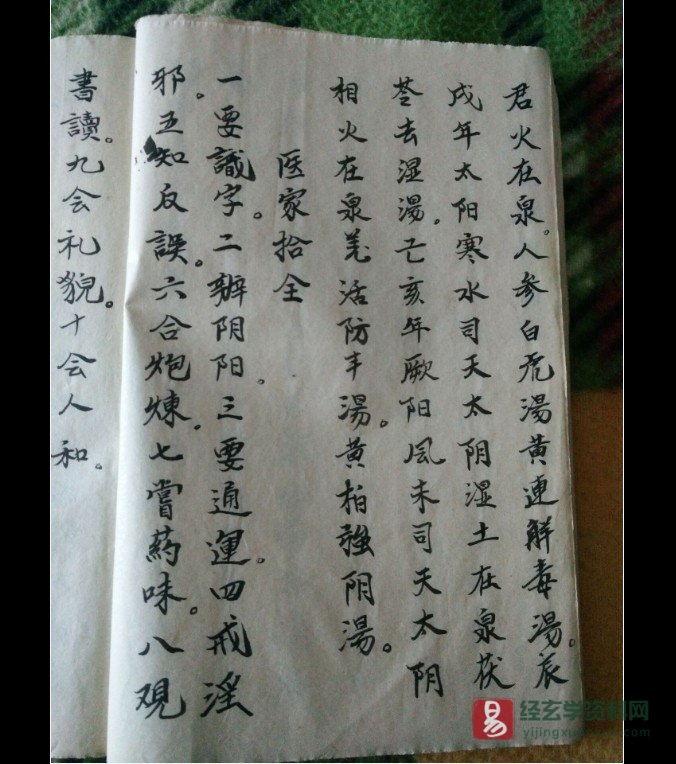 君火在泉。人参白虎湯黄連解毒湯。辰
戌年太阳寒水司天太阴湿土在泉茯
苓去湿湯。亡亥年厥阳风未司天太阴
相火在泉羌活防丰湯。黄柏强阴湯。
医家拾全
一要識字。二辨阴阳。三要通運。四戒淫
邪。五知反誤。六合炮煉。七嘗药味。八观
書讀。九会礼貌。十会人和。
易
经玄学资料网